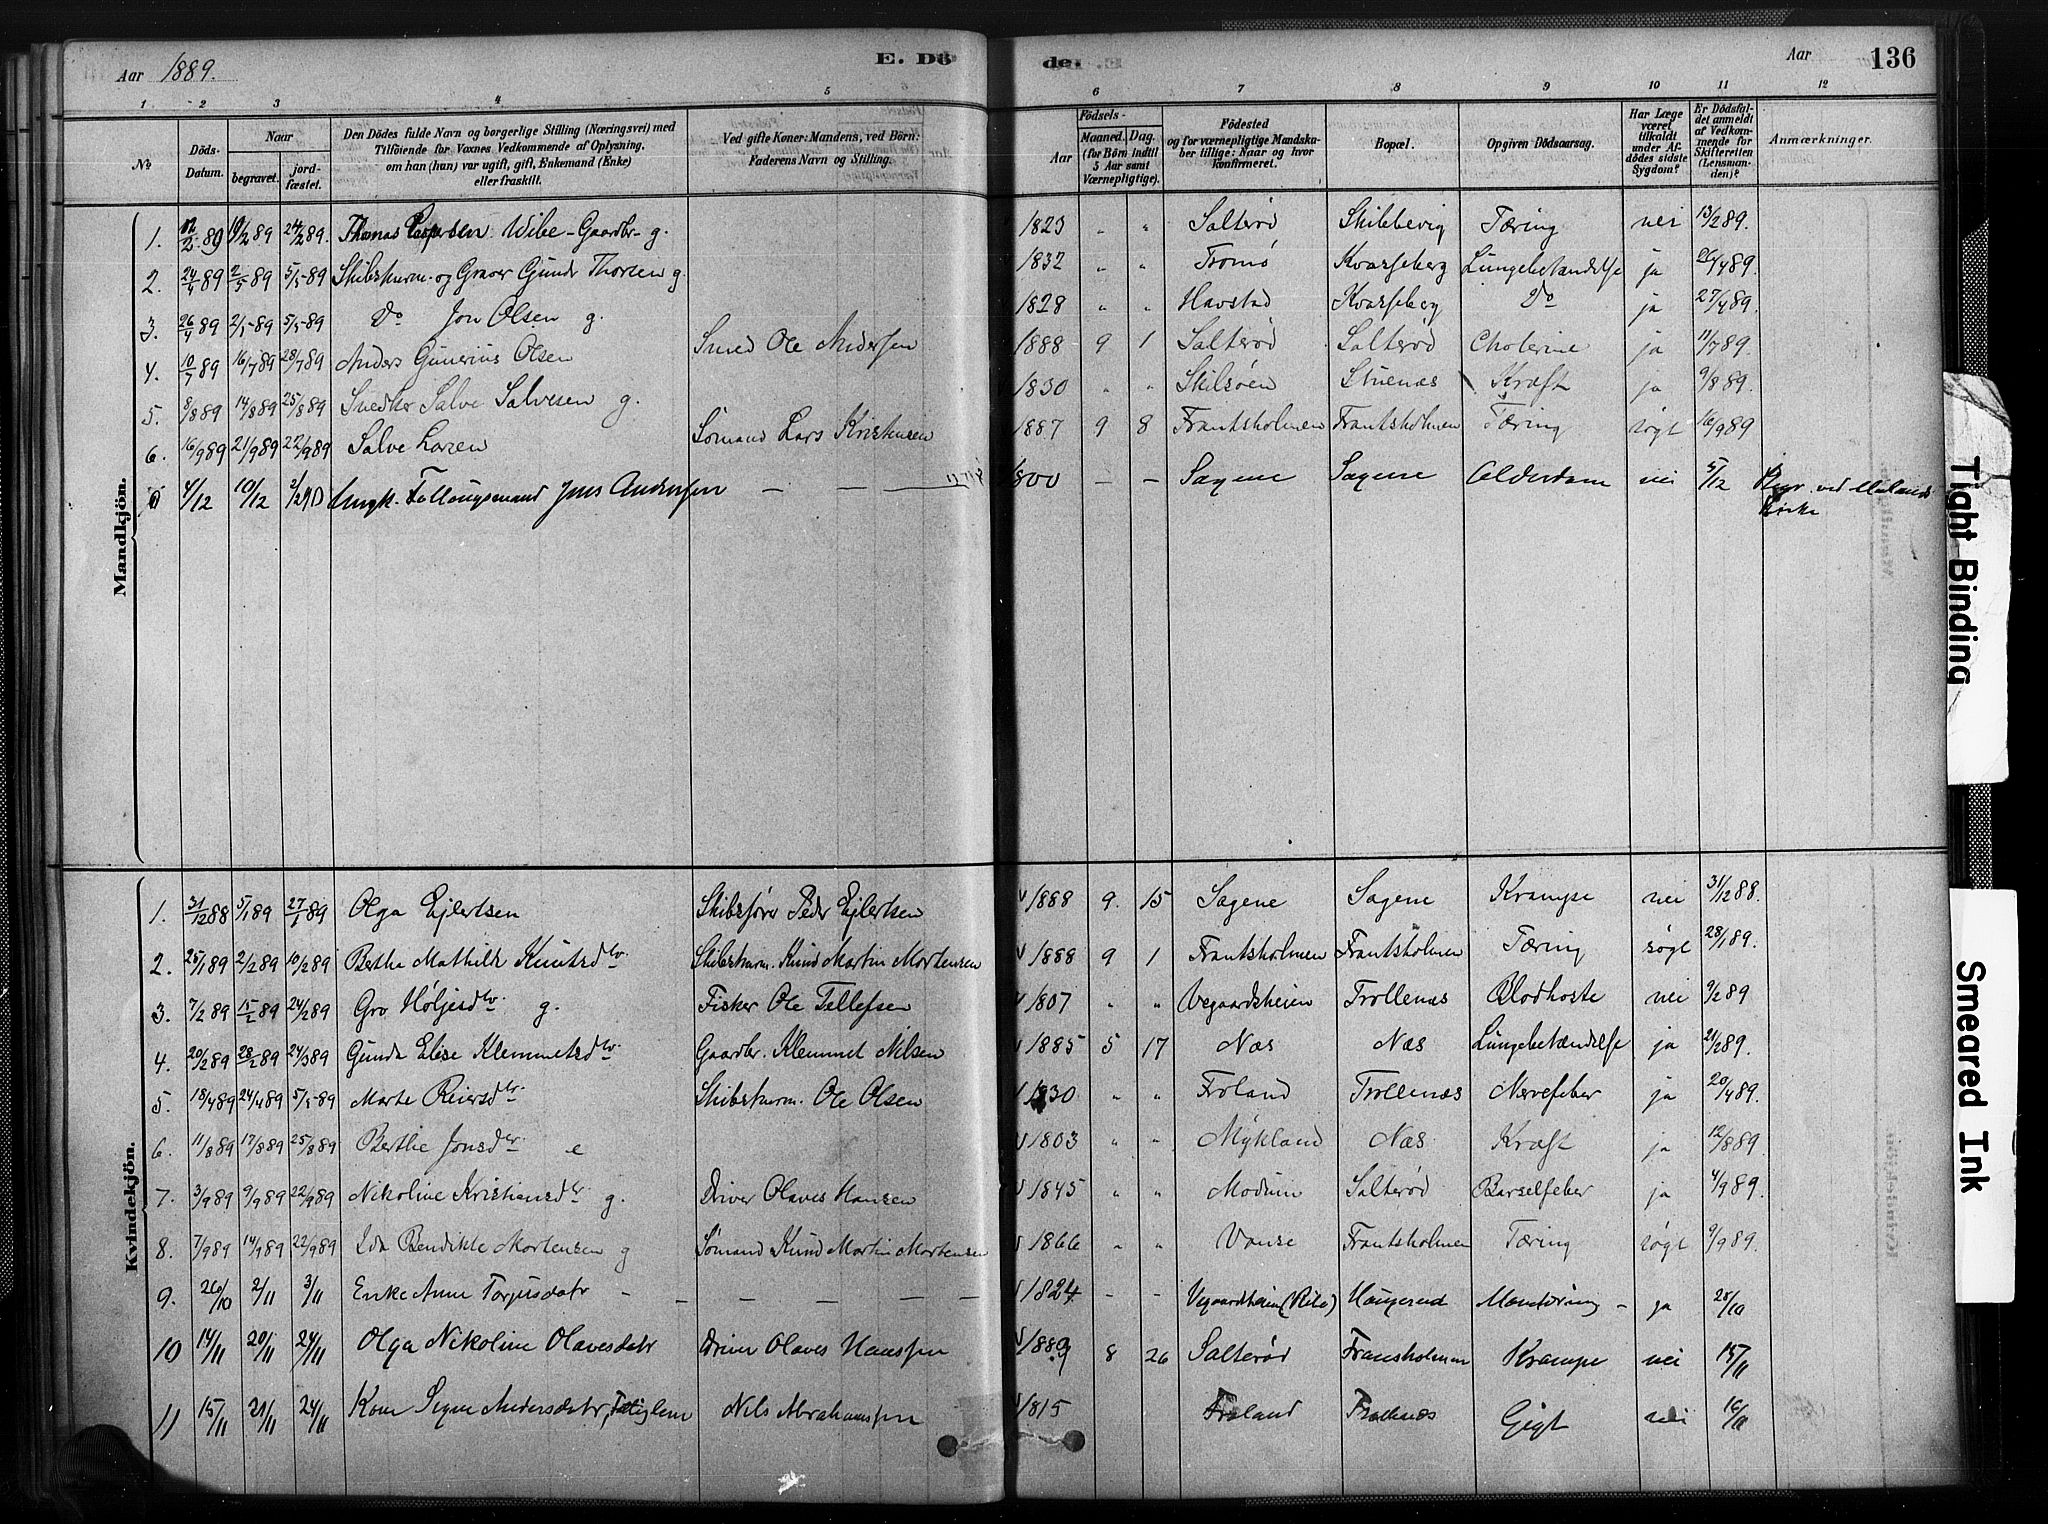 Aar 1889. E. Dö de. Aar 136
1 2 3 4 5 6 7 8 9 10 11 12
No Döds-Datum. Naar begravet. jordfæstet. Den Dödes fulde Navn og borgerlige Stilling (Næringsvei) med Tilföiende for Voxnes Vedkommende af Oplysning, om han (hun) var ugift, gift, Enkemand (Enke) eller fraskilt. Ved gifte Koner: Mandens, ved Börn: Faderens Navn og Stilling. Födsels- Aar Maaned. Dag. (for Börn indtil 5 Aar samt Værnepligtige). Födested og for værnepligtige Mandskaber tillige: Naar og hvor konfirmeret. Bopæl. Opgiven Dödsaarsag. Har Læge været tilkaldt under Afdödes sidste Sygdom? Er Dödsfaldet anmeldt af Vedkommende for Skifteretten (Lensmanden)? Anmærkninger.
Mandkjön.
1. 12/2 89 19/2 89 24/2 89. Thomas Caspersen Wibe - Gaardbr. g. 1823 " " Salterød Skibbevig Tæring nei 13/2 89.
2. 24/4 89 2/5 89 5/5 89 Skibsturm. og Graver Gunder Thorsen g. 1832 " " Tromø Kvarseberg Lungebetændelse ja 26/4 89.
3. 26/4 89 2/5 89 5/5 89 Do Jon Olsen g. 1828 " " Havstad Kvarseberg Do ja 27/4 89.
4. 10/7 89 16/7 89 28/7 89 Anders Gunerius Olsen Smed Ole Andersen 1888 9 1 Salterød Salterød Cholerine ja 11/7 89.
5. 8/8 89 14/8 89 25/8 89 Snedker Salve Salvesen g. 1830 " " Skilsøen Stuenæs Kræft ja 9/8 89.
6. 16/9 89 21/9 89 22/9 89 Salve Larsen Sømand Lars Kristensen 1887 9 8 Frantsholmen Frantsholmen Tæring søgt 16/9 89
4/12 10/12 2/2 90 Ungk. Jens Andersen — — 1800 — — Sagene Sagene Alderdom nei 5/12 ved Kirke
Kvindekjön.
1. 31/12 88 5/1 89 27/1 89 Olga Ejlertsen Skibsfører Peder Ejlertsen 1888 9. 15 Sagene Sagene Krampe nei 31/12 88.
2. 25/1 89 2/2 89 10/2 89 Berthe Mathilde Knutsdtr. Skibsturm. Knud Martin Mortensen 1888 9 1 Frantsholmen Frantsholmen Tæring søgt 28/1 89.
3. 7/2 89 15/2 89 24/2 89 Gro Høljesdtr. g. Fisker Ole Tellefsen 1807 " " Vegaardsheien Trollenæs Blodhoste nei 9/2 89
4. 20/2 89 28/2 89 24/3 89 Gunda Elise Klemmetsdtr. Gaardbr. Klemmet Nilsen 1885 5 17 Næs Næs Lungebetændelse ja 21/2 89.
5. 18/4 89 24/4 89 5/5 89 Marte Reiersdtr. Skibsturm. Ole Olsen 1830 " " Froland Trollenæs Nervefeber ja 20/4 89.
6. 11/8 89 17/8 89 25/8 89 Berthe Jonsdtr. e 1803 " " Mykland Næs Kræft ja 12/8 89.
7. 3/9 89 9/9 89 22/9 89 Nikoline Kristiensdtr. g. Driver Olaves Hansen 1845 " " Modum Salterød Barselfeber ja 4/9 89.
8. 7/9 89 14/9 89 22/9 89 Ida Bendikte Mortensen g Sømand Knud Martin Mortensen 1866 " " Vanse Frantsholmen Tæring søgt 9/9 89.
9. 26/10 2/11 3/11 Enke Anne Torjusdatr — — — — 1824 — — Vegaardsheien Haugerud ja 28/10
10 14/11 20/11 24/11 Olga Nikoline Olavesdatr Driver Olaves Hanssen 1889 8 26 Salterød Fransholmen Krampe nei 15/11
11 15/11 21/11 24/11 Kone Signe Andersdatr, Nils Abrahamsen 1815 Froland Trollnæs Gigt nei 16/11
Tight Binding
Smeared Ink